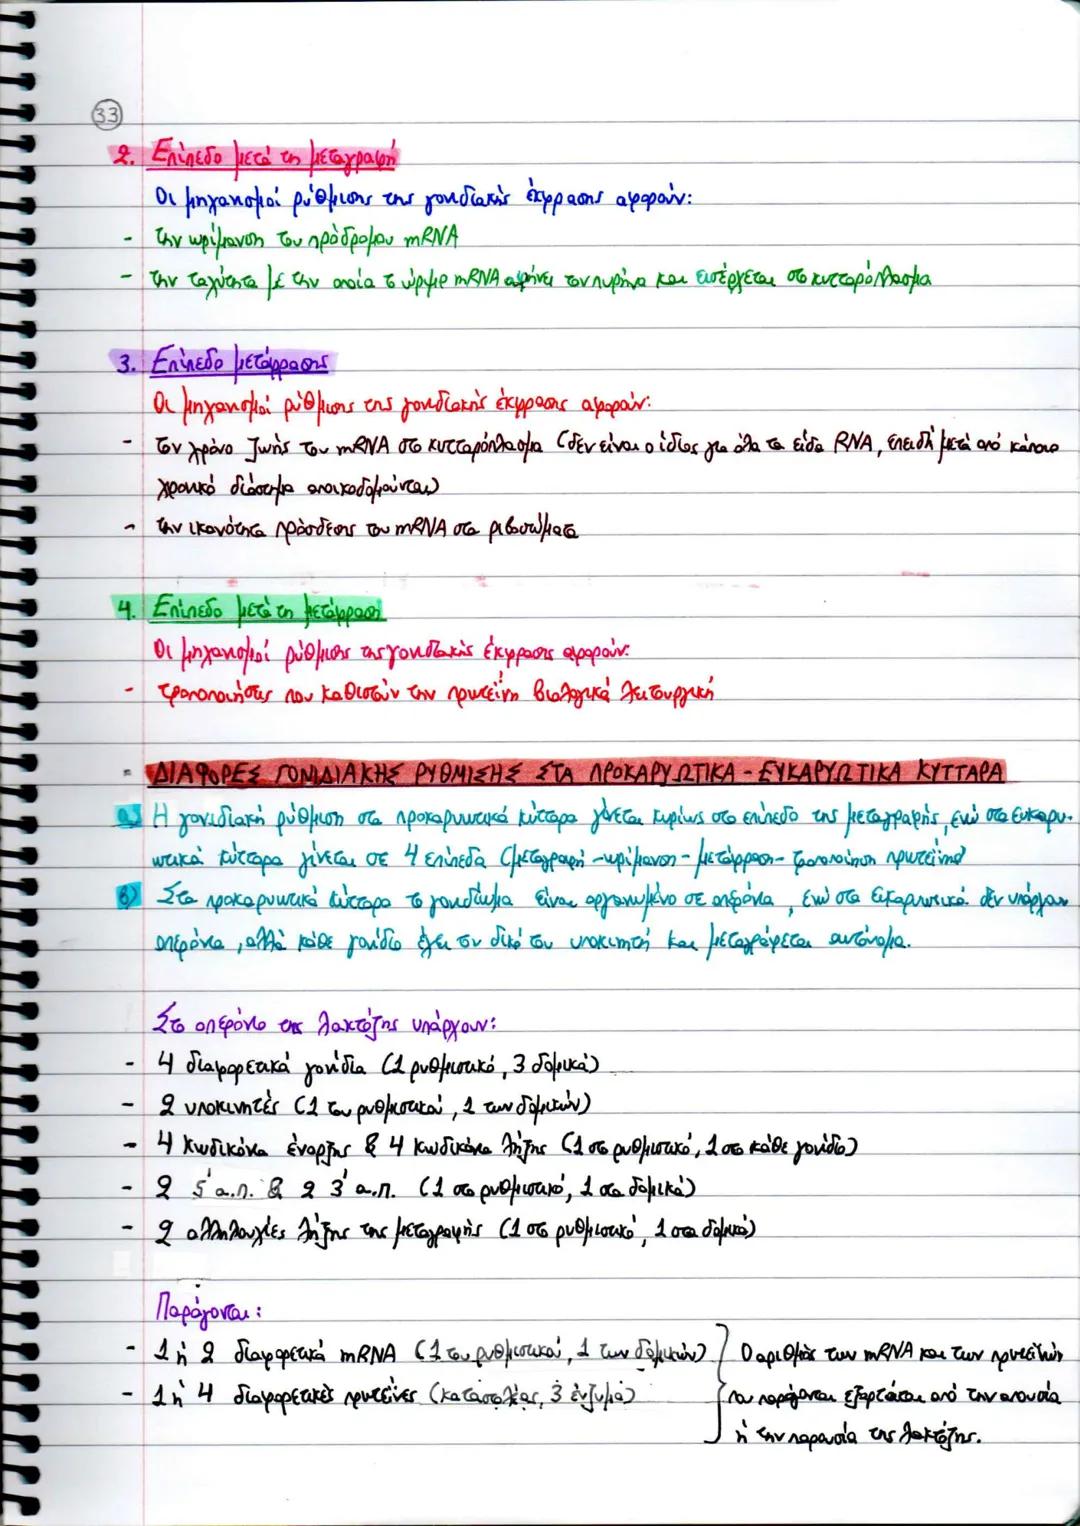 33
2. Επίπεδο μετά τη μεταγραφή
Οι μηχανισμοί ρύθμισης της γονιδιακής έκφρασης αφορούν:
- την ωρίμανση του πρόδρομου mRNA
- την ταχύτητα με την οποία το ώριμο mRNA αφήνει τον πυρήνα και εισέρχεται στο κυτταρόπλασμα
3. Επίπεδο μετάφρασης
Οι μηχανισμοί ρύθμισης της γονιδιακής έκφρασης αφορούν:
- τον χρόνο ζωής του mRNA στο κυτταρόπλασμα (δεν είναι ο ίδιος για όλα τα είδη RNA, επειδή μετά από κάποιο
χρονικό διάστημα αποικοδομούνται)
- την ικανότητα πρόσδεσης του mRNA στα ριβοσώματα
4. Επίπεδο μετά τη μετάφραση
Οι μηχανισμοί ρύθμισης της γονιδιακής έκφρασης αφορούν:
- τροποποιήσεις που καθιστούν την πρωτεΐνη βιολογικά λειτουργική
- ΔΙΑΦΟΡΕΣ ΓΟΝΙΔΙΑΚΗΣ ΡΥΘΜΙΣΗΣ ΣΤΑ ΠΡΟΚΑΡΥΩΤΙΚΑ - ΕΥΚΑΡΥΩΤΙΚΑ ΚΥΤΤΑΡΑ
α) Η γονιδιακή ρύθμιση στα προκαρυωτικά κύτταρα γίνεται κυρίως στο επίπεδο της μεταγραφής, ενώ στα ευκαρυ-
ωτικά κύτταρα γίνεται σε 4 επίπεδα (μεταγραφή - ωρίμανση - μετάφραση - τροποποίηση πρωτεΐνης)
β) Στα προκαρυωτικά κύτταρα το γονιδίωμα είναι οργανωμένο σε οπερόνια, ενώ στα ευκαρυωτικά δεν υπάρχουν
οπερόνια, αλλά κάθε γονίδιο έχει τον δικό του υποκινητή και μεταγράφεται αυτόνομα.
Στο οπερόνιο της λακτόζης υπάρχουν:
- 4 διαφορετικά γονίδια (1 ρυθμιστικό, 3 δομικά)
- 2 υποκινητές (1 του ρυθμιστικού, 1 των δομικών)
- 4 κωδικόνια έναρξης & 4 κωδικόνια λήξης (1 στο ρυθμιστικό, 1 στο κάθε γονίδιο)
- 2 5' α.π. & 2 3' α.π. (1 στο ρυθμιστικό, 1 στα δομικά)
- 2 αλληλουχίες λήξης της μεταγραφής (1 στο ρυθμιστικό, 1 στα δομικά)
Παράγονται:
- 1 ή 2 διαφορετικά mRNA (1 του ρυθμιστικού, 1 των δομικών) } Ο αριθμός των mRNA και των πρωτεϊνών
- 1 ή 4 διαφορετικές πρωτεΐνες (καταστολέας, 3 ένζυμα) που παράγονται εξαρτάται από την απουσία
ή την παρουσία της λακτόζης.